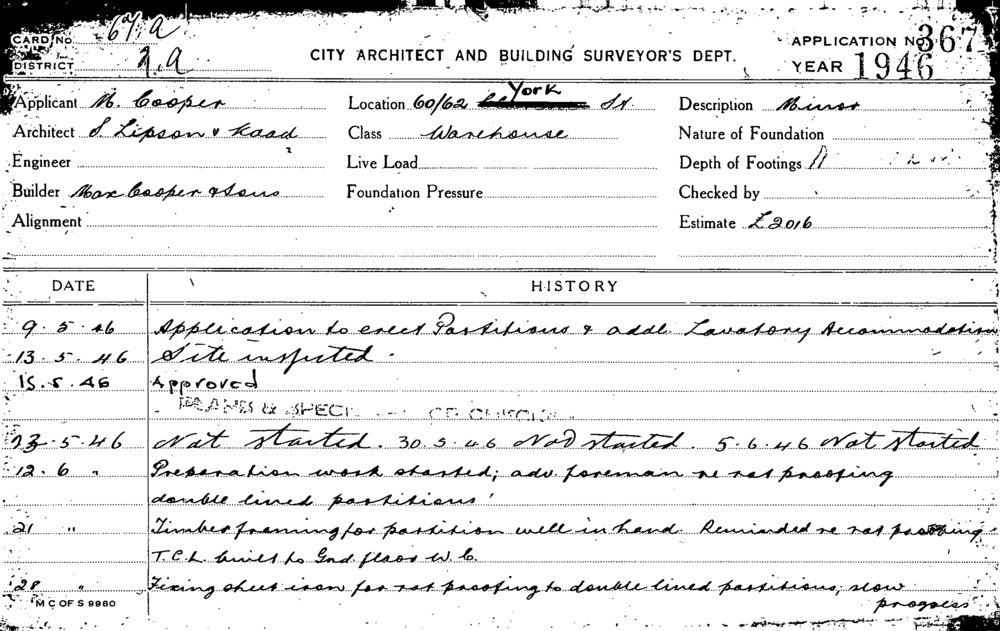 CARD No. 67A
DISTRICT 2.A
CITY ARCHITECT AND BUILDING SURVEYOR'S DEPT.
APPLICATION No 367
YEAR 1946
Applicant M. Cooper Location 60/62 York St. Description Minor
Architect S. Lipson & Kaad Class Warehouse Nature of Foundation
Engineer Live Load Depth of Footings
Builder Max Cooper & Sons Foundation Pressure Checked by
Alignment Estimate £2016
DATE HISTORY
9.5.46 Application to erect Partitions & addl. Lavatory Accommodation
13.5.46 Site inspected.
15.5.46 Approved
PLANS & SPECI
23.5.46 Not started. 30.5.46 Not started. 5.6.46 Not started
12.6 " Preparation work started; adv. foreman re rat proofing
double lined partitions
21 " Timber framing for partition well in hand. Reminded re rat proofing
T.C.L. built to Gnd. floor W.C.
28 " Fixing sheet iron for rat proofing to double lined partitions, slow
progress
M C OF S 9980